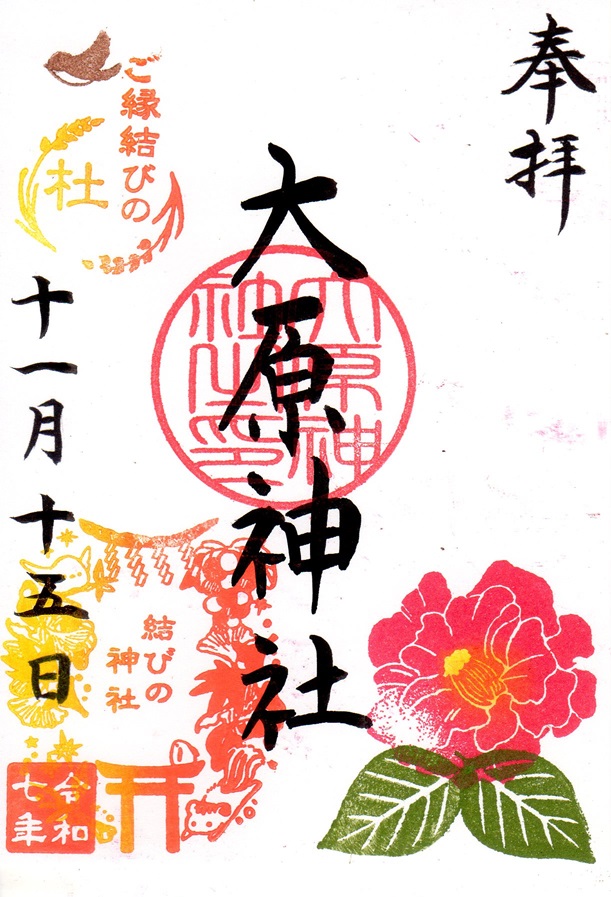 奉拝
大原神社
大原神社之印
ご縁結びの
杜
十一月十五日
結びの
神社
令和
七年